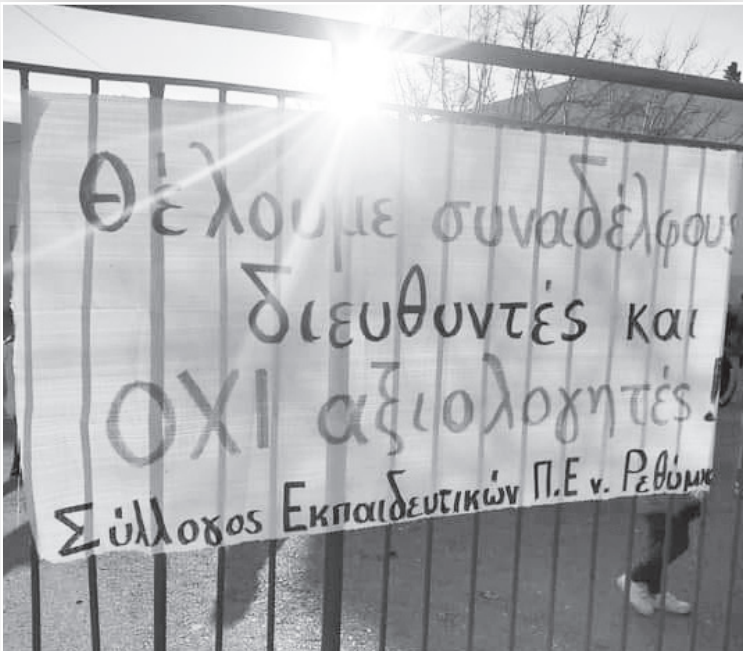 Θέλουμε συναδέλφους
διευθυντές και
ΟΧΙ αξιολογητές!
Σύλλογος Εκπαιδευτικών Π.Ε ν. Ρεθύμν